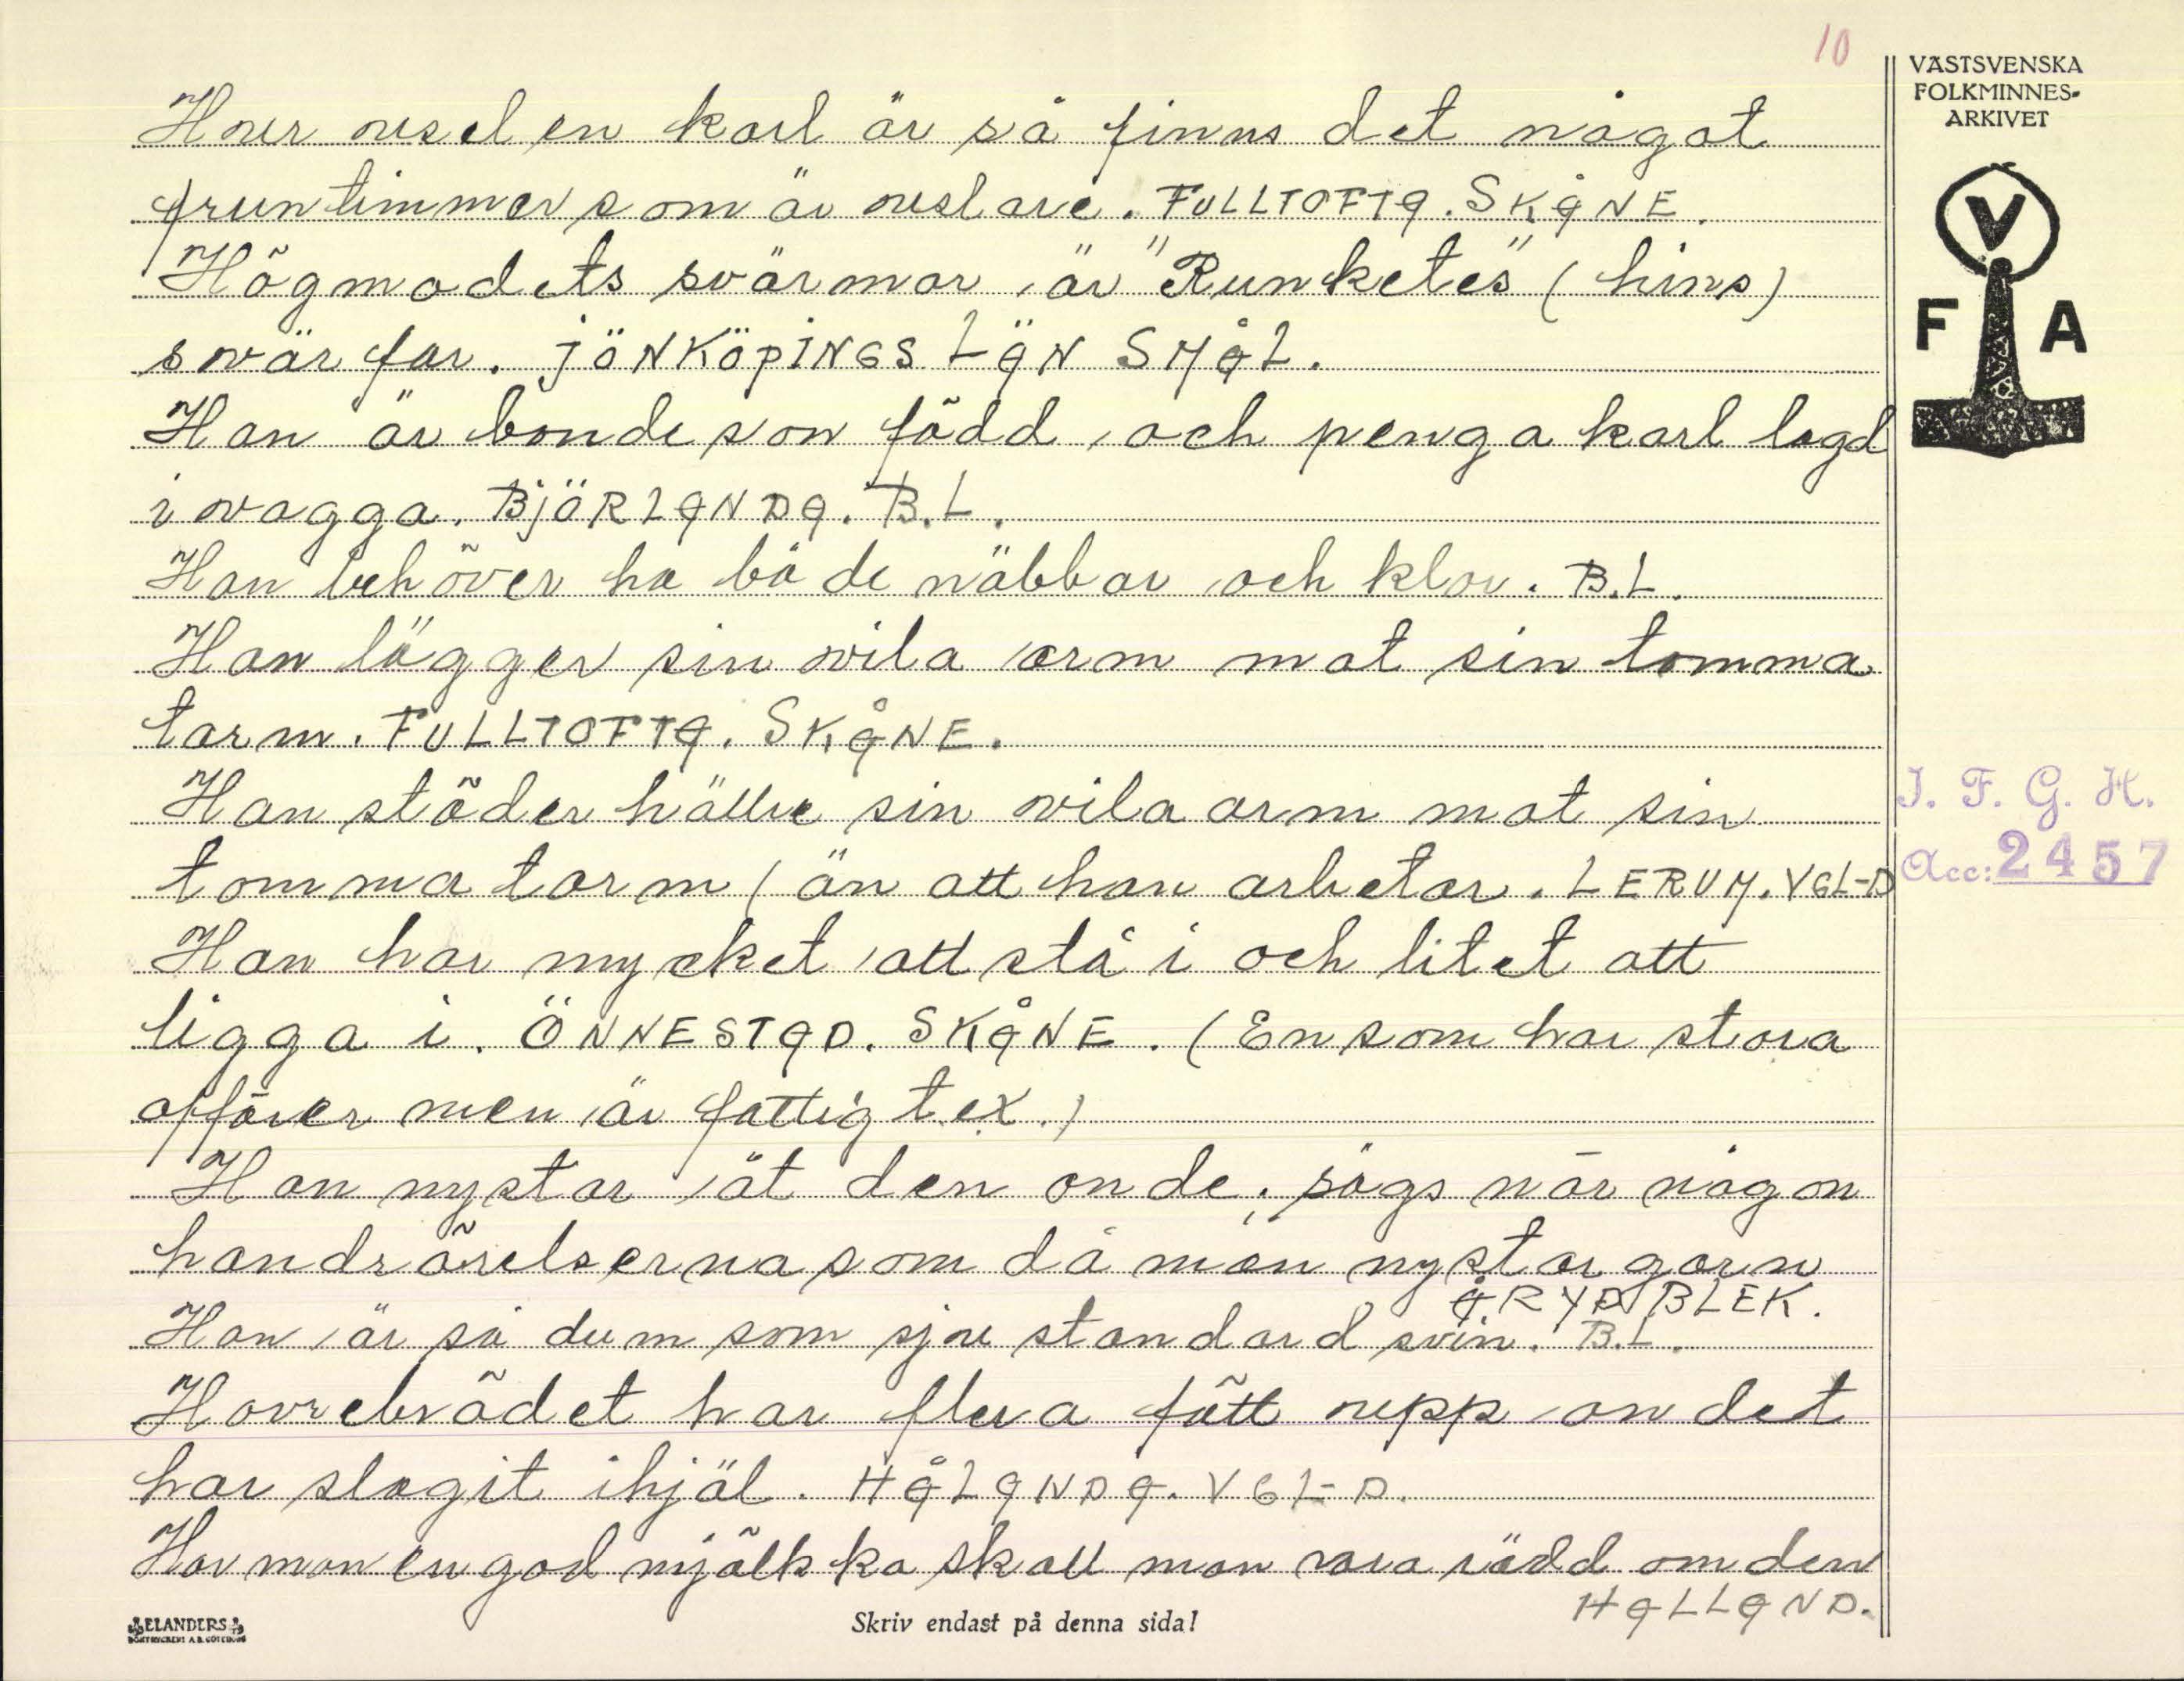 10
VÄSTSVENSKA
FOLKMINNES-
ARKIVET
V
F A
Hur usel en karl är så finns det något
fruntimmer som är uslare. FULLTOFTA. SKÅNE.
Högmodets svärmor är "Runketes" (hins)
svärfar. JÖNKÖPINGS LÄN SMÅL.
Han är bondeson född och pengakarl lagd
i vagga. BJÖRLANDA. B.L.
Han behöver ha både näbbar och klor. B.L.
Han lägger sin vila arm mot sin tomma
tarm. FULLTOFTA. SKÅNE.
Han stöder hällre sin vila arm mot sin
tomma tarm (än att han arbetar. LERUM. VGL-D
Han har mycket att stå i och litet att
ligga i. ÖNNESTAD. SKÅNE. (En som har stora
affärer men är fattig t.ex.)
Han nystar åt den onde, sägs när någon
handrörelserna som då man nystar garn
ÅRYD BLEK.
Han är så dum som sju standard svin. B.L.
Havrebrödet har flera fött upp än det
har slagit ihjäl. HÅLANDA. VGL-D.
Har man en god mjölkko skall man vara rädd om den
HALLAND.
I. F. G. H.
Acc: 2457
ELANDERS
BOKTRYCKERI A.B. GÖTEBORG
Skriv endast på denna sida!